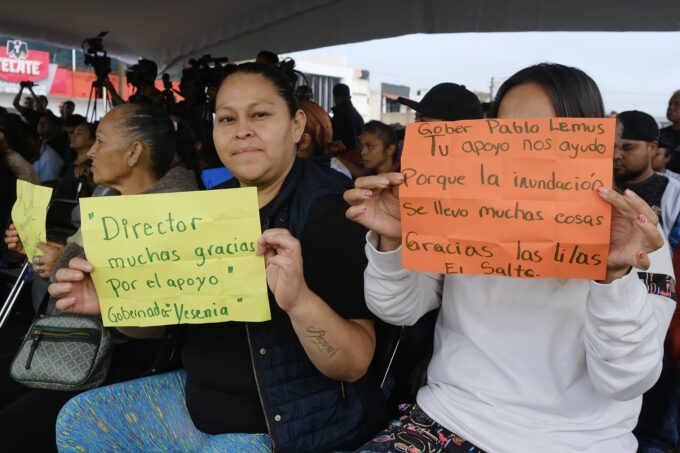 TECATE
"Director
muchas gracias
Por el apoyo"
Gobernador "Yesenia"
Gober Pablo Lemus
Tu apoyo nos ayudo
Porque la inundación
Se llevo muchas cosas
Gracias las lilas
El Salto.